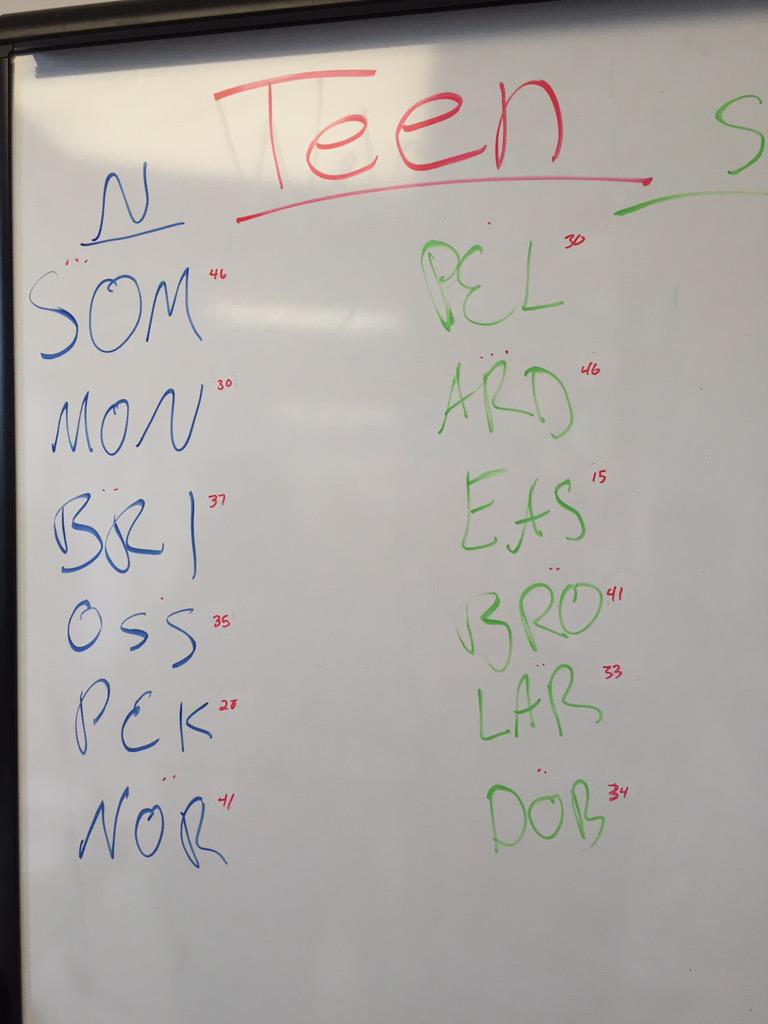 Teen
N
S
SOM 46
MON 30
BRI 37
OSS 35
PEK 28
NOR 41
PEL 30
ARD 46
EAS 15
BRO 41
LAR 33
DOB 34